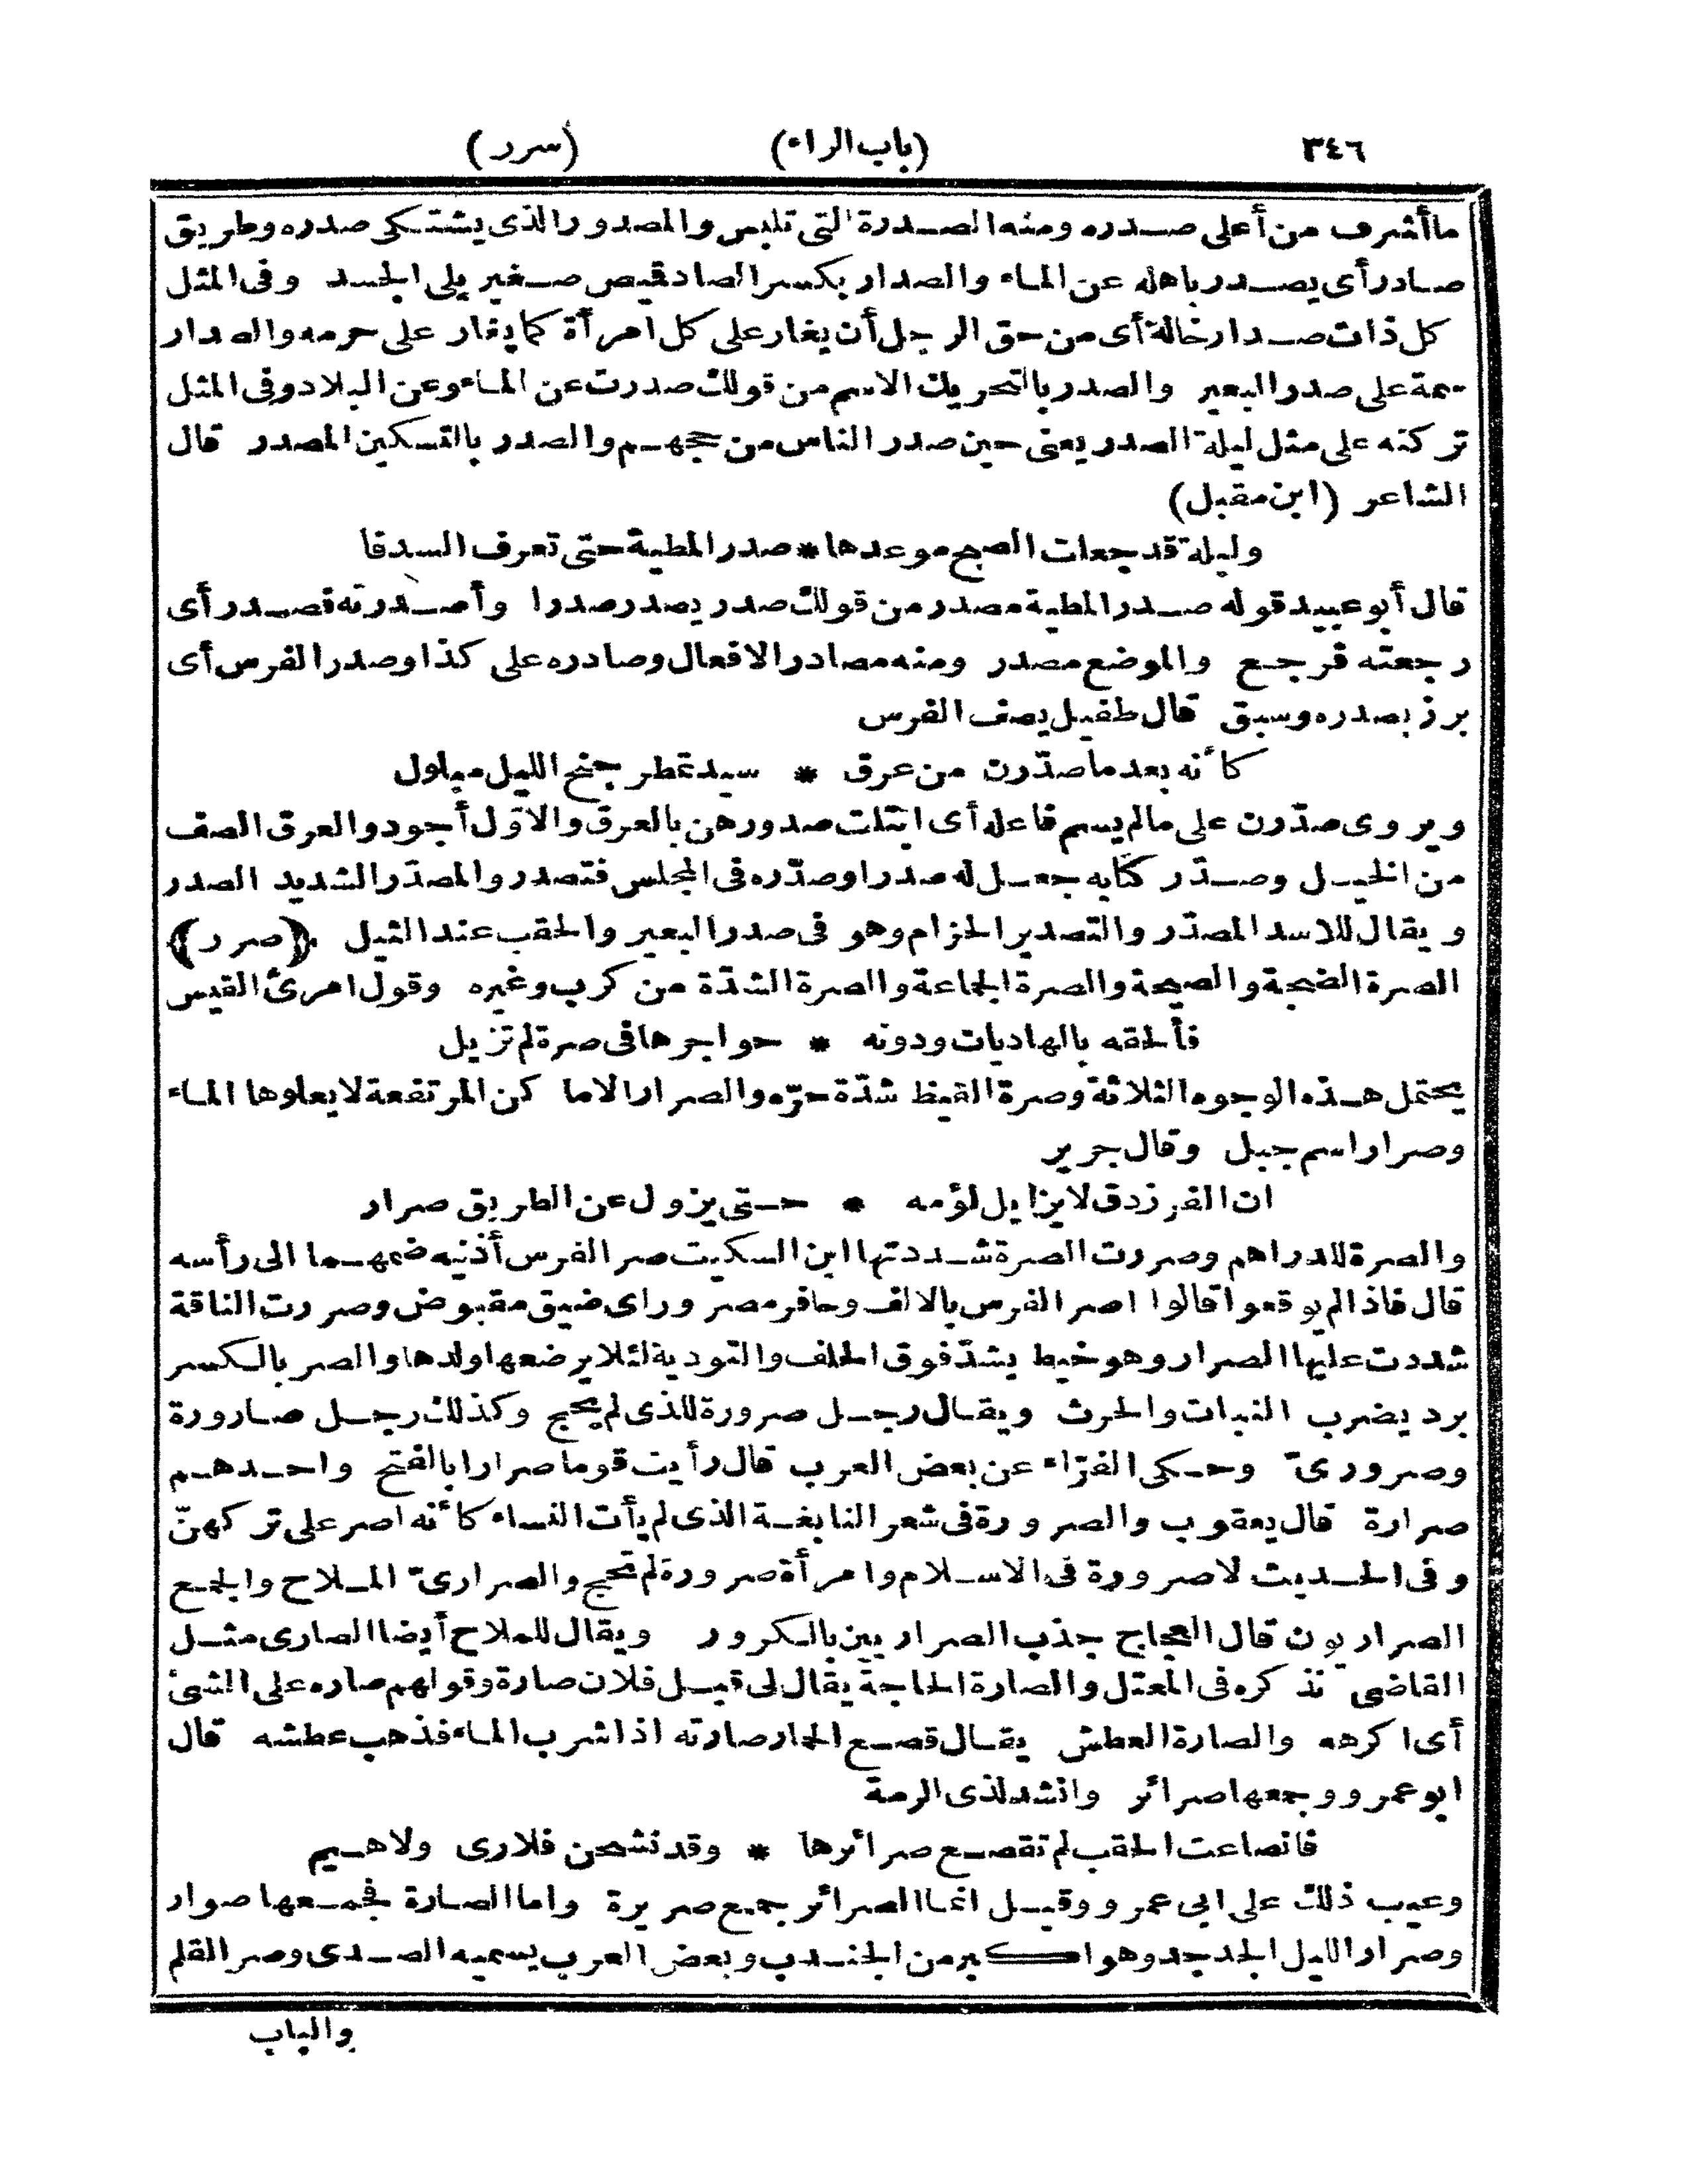 ٣٤٦ (باب الراء) (سرر)
ما أشرف من أعلى صدره ومنه الصدرة التى تلبس والمصدور الذى يشتكى صدره وطريق
صادر أى يصدر باهله عن الماء والصدار بكسر الصاد قميص صغير يلى الجسد وفى المثل
كل ذات صدار خالة أى من حق الرجل أن يغار على كل امرأة كما يغار على حرمه والصدار
سمة على صدر البعير والصدر بالتحريك الاسم من قولك صدرت عن الماء وعن البلاد وفى المثل
تركته على مثل ليلة الصدر يعنى حين صدر الناس من حجهم والصدر بالتسكين المصدر قال
الشاعر (ابن مقبل)
وليلة قد جعلت الصبح موعدها * صدر المطية حتى تعرف السدفا
قال أبو عبيد قوله صدر المطية مصدر من قولك صدر يصدر صدرا وأصدرته فصدر أى
رجعته فرجع والموضع مصدر ومنه مصادر الافعال وصادره على كذا وصدر الفرس أى
برز بصدره وسبق قال طفيل يصف الفرس
كأنه بعد ما صدّرن من عرق * سيد تمطر جنح الليل مبلول
ويروى صدّرن على مالم يسم فاعله أى ابتلت صدورهن بالعرق والاوّل أجود والعرق الصف
من الخيل وصدّر كتابه جعل له صدرا وصدّره فى المجلس فتصدر والمصدّر الشديد الصدر
ويقال للاسد المصدّر والتصدير الحزام وهو فى صدر البعير والحقب عند الثيل ﴿صرر﴾
الصرة الضجة والصيحة والصرة الجاعة والصرة الشدّة من كرب وغيره وقول امرئ القيس
فألحقه بالهاديات ودونه * حواجرها فى صرة لم تزيل
يحتمل هذه الوجوه الثلاثة وصرة القيظ شدّة حرّه والصرار الاماكن المرتفعة لا يعلوها الماء
وصرار اسم جبل وقال جرير
ان الفرزدق لا يزايل لؤمه * حتى يزول عن الطريق صرار
والصرة للدراهم وصررت الصرة شددتها ابن السكيت صر الفرس أذنيه ضمهما الى رأسه
قال فاذا لم يوقعوا قالوا اصر الفرس بالالف وحافر مصرور اى ضيق مقبوض وصررت الناقة
شددت عليها الصرار وهو خيط يشدّ فوق الخلف والتودية لئلا يرضعها ولدها والصر بالكسر
برد يضرب النبات والحرث ويقال رجل صرورة للذى لم يحج وكذلك رجل صارورة
وصرورىّ وحكى الفرّاء عن بعض العرب قال رأيت قوما صرارا بالفتح واحدهم
صرارة قال يعقوب والصرورة فى شعر النابغة الذى لم يأت النساء كأنه اصر على تركهنّ
وفى الحديث لا صرورة فى الاسلام وامرأة صرورة لم تحج والصرارىّ الملاح والجمع
الصراريون قال العجاج جذب الصراريين بالكرور ويقال للملاح أيضا الصارى مثل
القاضى نذكره فى المعتل والصارة الحاجة يقال لى قبل فلان صارة وقولهم صاره على الشئ
أى اكرهه والصارة العطش يقال قصع الحمار صارته اذا شرب الماء فذهب عطشه قال
ابو عمرو وجمعها صرائر وانشد لذى الرمة
فانصاعت الحقب لم تقصع صرائرها * وقد نشحن فلارى ولا هيم
وعيب ذلك على ابى عمرو وقيل انما الصرائر جمع صريرة واما الصارة فجمعها صوار
وصرار الليل الجدجد وهو اكبر من الجندب وبعض العرب يسميه الصدى وصر القلم
والباب